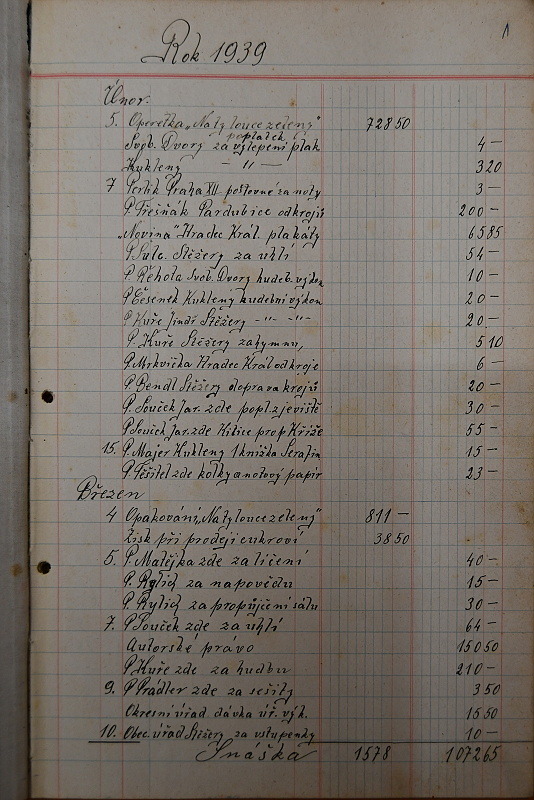 1
Rok 1939
Únor.
5. Operetka „Na tý louce zelený" 728 50
poplatek
Svob. Dvory za výlepení plak 4 —
Kukleny — " — 3 20
7 Perlík Praha XII poštovné za noty 3 —
P. Třešňák Pardubice od krojů 200 —
„Novina" Hradec Král. plakáty 65 85
P. Stěžery za uhlí 54 —
P. Řehola Svob. Dvory hudeb. výkon 10 —
P. Kukleny hudební výkon 20 —
P. Kuře Jindř Stěžery — " — — " — 20 —
P. Kuře Stěžery za hymnu, 5 10
P. Mrkvička Hradec Král od kroje 6 —
P. Bendl Stěžery doprava krojů 20 —
P. Souček Jar. zde popl. z jeviště 30 —
P. Souček Jar. zde 55 —
15. P. Majer Kukleny 1 knížka Serafin 15 —
P. Těšitel zde kolky a notový papír 23 —
Březen
4 Opakování „Na tý louce zelený" 811 —
Zisk při prodeji cukroví 38 50
5. P. Matějka zde za líčení 40 —
P. Rylich za napovědu 15 —
P. Rylich za propůjčení sálu 30 —
7. P. Souček zde za uhlí 64 —
Autorské právo 150 50
P. Kuře zde za hudbu 210 —
9. P. Prádler zde za sešity 3 50
Okresní úřad dávka úř. výk. 15 50
10. Obec. úřad Stěžery za vstupenky 10 —
Snáška 1578 1072 65